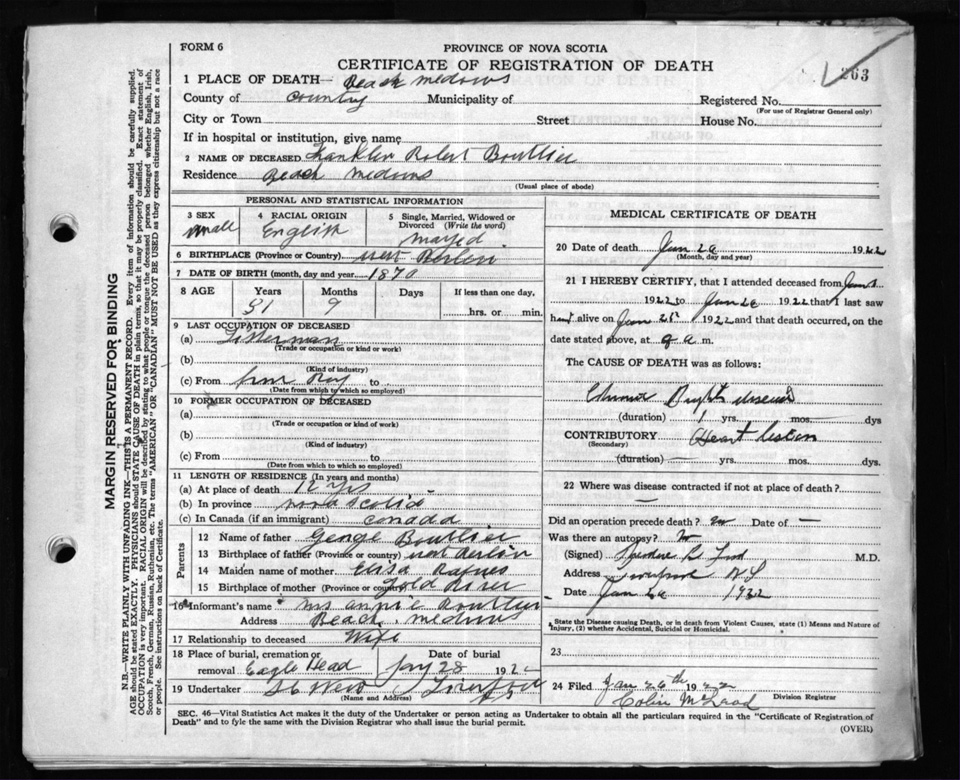 FORM 6
PROVINCE OF NOVA SCOTIA
CERTIFICATE OF REGISTRATION OF DEATH
263
1 PLACE OF DEATH— Beach Medows
County of County Municipality of Registered No.
(For use of Registrar General only)
City or Town Street House No.
If in hospital or institution, give name
2 NAME OF DECEASED Franklin Robert Boutlier
Residence Beach Medows
(Usual place of abode)
PERSONAL AND STATISTICAL INFORMATION
3 SEX
male
4 RACIAL ORIGIN
English
5 Single, Married, Widowed or Divorced (Write the word)
6 BIRTHPLACE (Province or Country) west Berlin
7 DATE OF BIRTH (month, day and year 1870
8 AGE Years Months Days If less than one day,
51 9 hrs. or min.
9 LAST OCCUPATION OF DECEASED
(a) Fisherman
(Trade or occupation or kind or work)
(b)
(Kind of industry)
(c) From to
(Date from which to which so employed)
10 FORMER OCCUPATION OF DECEASED
(a)
(Trade or occupation or kind of work)
(b)
(Kind of Industry)
(c) From to
(Date from which to which so employed)
11 LENGTH OF RESIDENCE (In years and months)
(a) At place of death 12 yrs
(b) In province nova scotia
(c) In Canada (if an immigrant) canada
Parents
12 Name of father George Boutlier
13 Birthplace of father (Province or country) west Berlin
14 Maiden name of mother. Elisa
15 Birthplace of mother (Province or country) Gold River
16 Informant's name " Mrs annie Boutlier
Address Beach Medows
17 Relationship to deceased Wife
18 Place of burial, cremation or removal Eagle Head
Date of burial
Jany 28 192
19 Undertaker Liverpool
(Name and Address)
MEDICAL CERTIFICATE OF DEATH
20 Date of death Jan 26 1922
(Month, day and year)
21 I HEREBY CERTIFY, that I attended deceased from Jan
1922 to Jan 26 1922 that I last saw
h alive on Jan 25 1922 and that death occurred, on
date stated above, at a.m.
The CAUSE OF DEATH was as follows:
Chronic Brights disease
(duration) 1 yrs. mos. dys
CONTRIBUTORY Heart lesion
(Secondary)
(duration) — yrs. mos. dys.
22 Where was disease contracted if not at place of death?
—
Did an operation precede death? no Date of —
Was there an autopsy? no
(Signed) M.D.
Address Liverpool N S
Date Jan 26 1922
* State the Disease causing Death, or in death from Violent Causes, state (1) Means and Nature of
Injury, (2) whether Accidental, Suicidal or Homicidal.
23
24 Filed Jan 26th 1922
Colin McLeod
Division Registrar
SEC. 46—Vital Statistics Act makes it the duty of the Undertaker or person acting as Undertaker to obtain all the particulars required in the "Certificate of Registration of
Death" and to fyle the same with the Division Registrar who shall issue the burial permit.
(OVER)
MARGIN RESERVED FOR BINDING
N.B.—WRITE PLAINLY WITH UNFADING INK—THIS IS A PERMANENT RECORD. Every item of information should be carefully supplied.
AGE should be stated EXACTLY. PHYSICIANS should STATE CAUSE OF DEATH in plain terms, so that it may be properly classified. Exact statement of
OCCUPATION is very important. RACIAL ORIGIN will be described by stating to what people or tongue the deceased person belonged whether English, Irish,
Scotch, French, German, Russian, Ruthenian, etc. The terms "AMERICAN" OR "CANADIAN" MUST NOT BE USED as they express citizenship but not a race
or people. See instructions on back of Certificate.